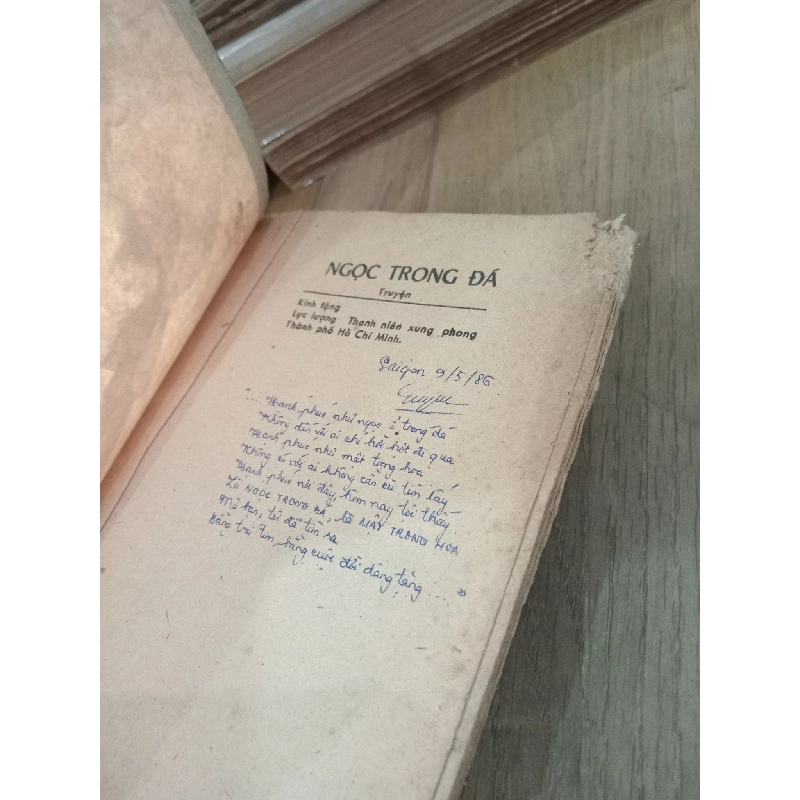 NGỌC TRONG ĐÁ
Truyện
Kính tặng
Lực lượng Thanh niên xung phong
Thành phố Hồ Chí Minh.
Saigon 9/5/86
... Hạnh phúc như ngọc ở trong đá
Không đến với ai chỉ hời hợt đi qua
Hạnh phúc như mật trong hoa
Không có với ai không cần cù tìm lấy
Hạnh phúc nơi đây, hôm nay tôi thấy
Là NGỌC TRONG ĐÁ, là MẬT TRONG HOA
Mà bạn, tôi đã tìm ra
Bằng trái tim, bằng cuộc đời dâng tặng ... "